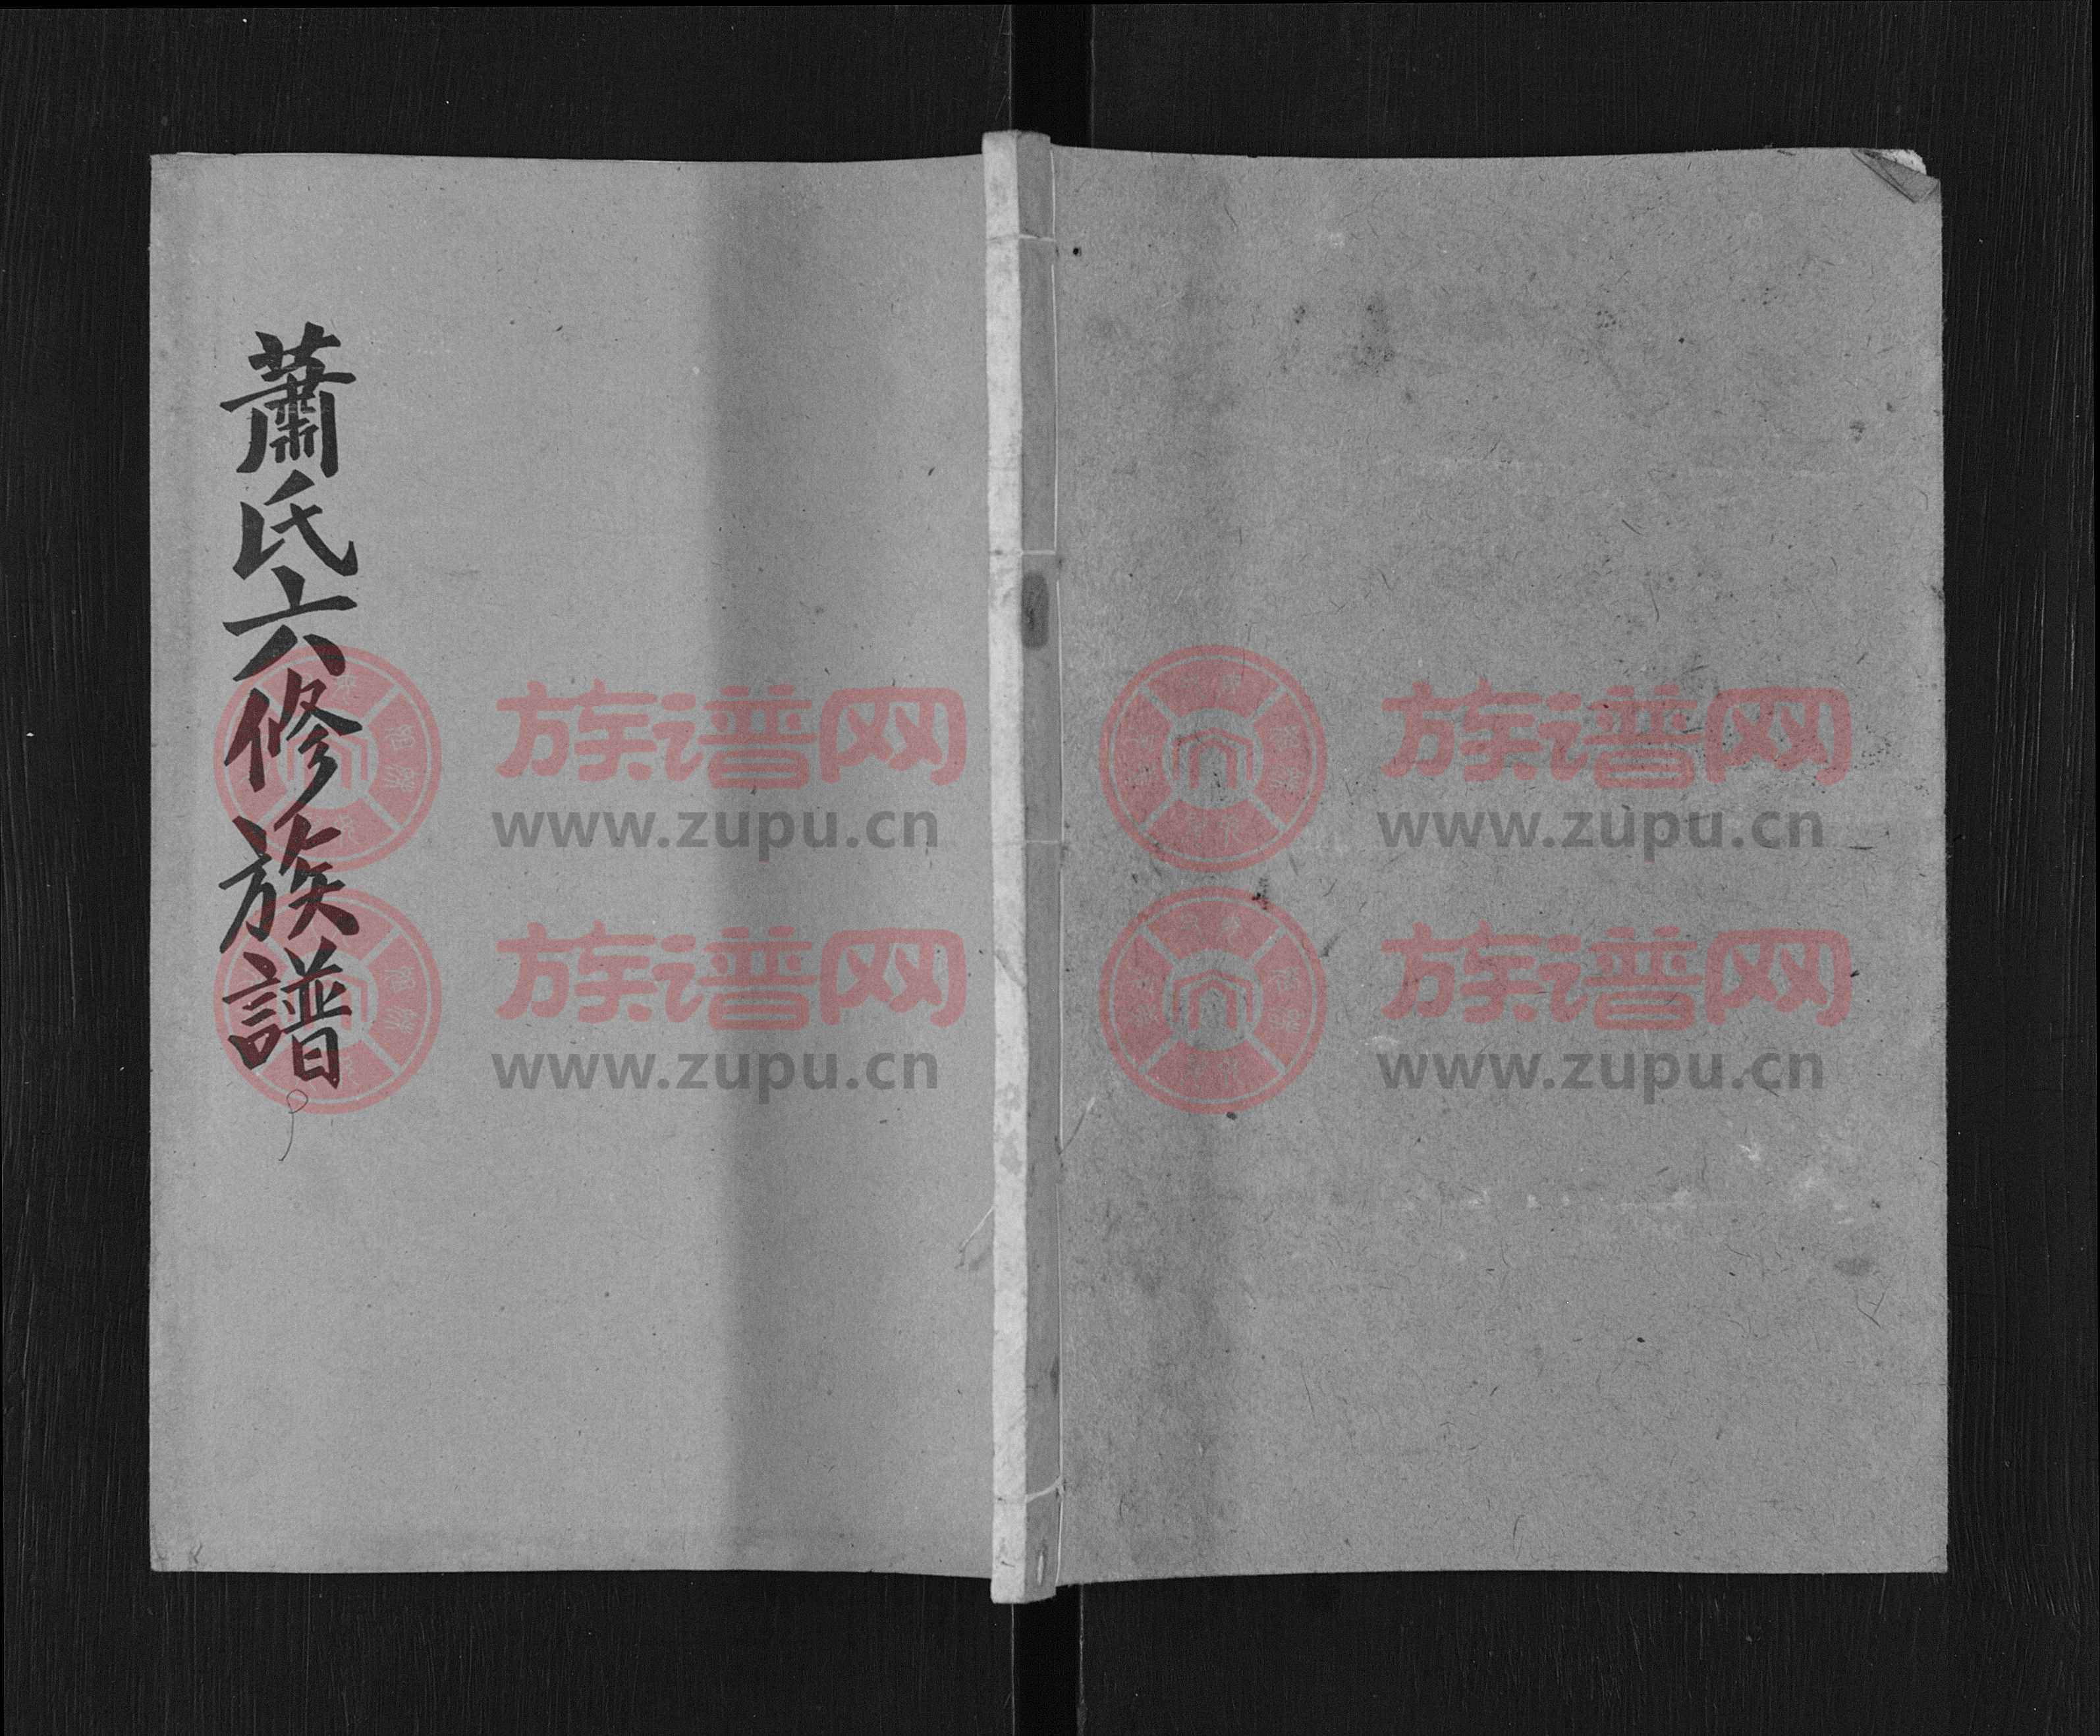 蕭氏六修族譜
族谱网
www.zupu.cn
族谱网
www.zupu.cn
族谱网
www.zupu.cn
族谱网
www.zupu.cn